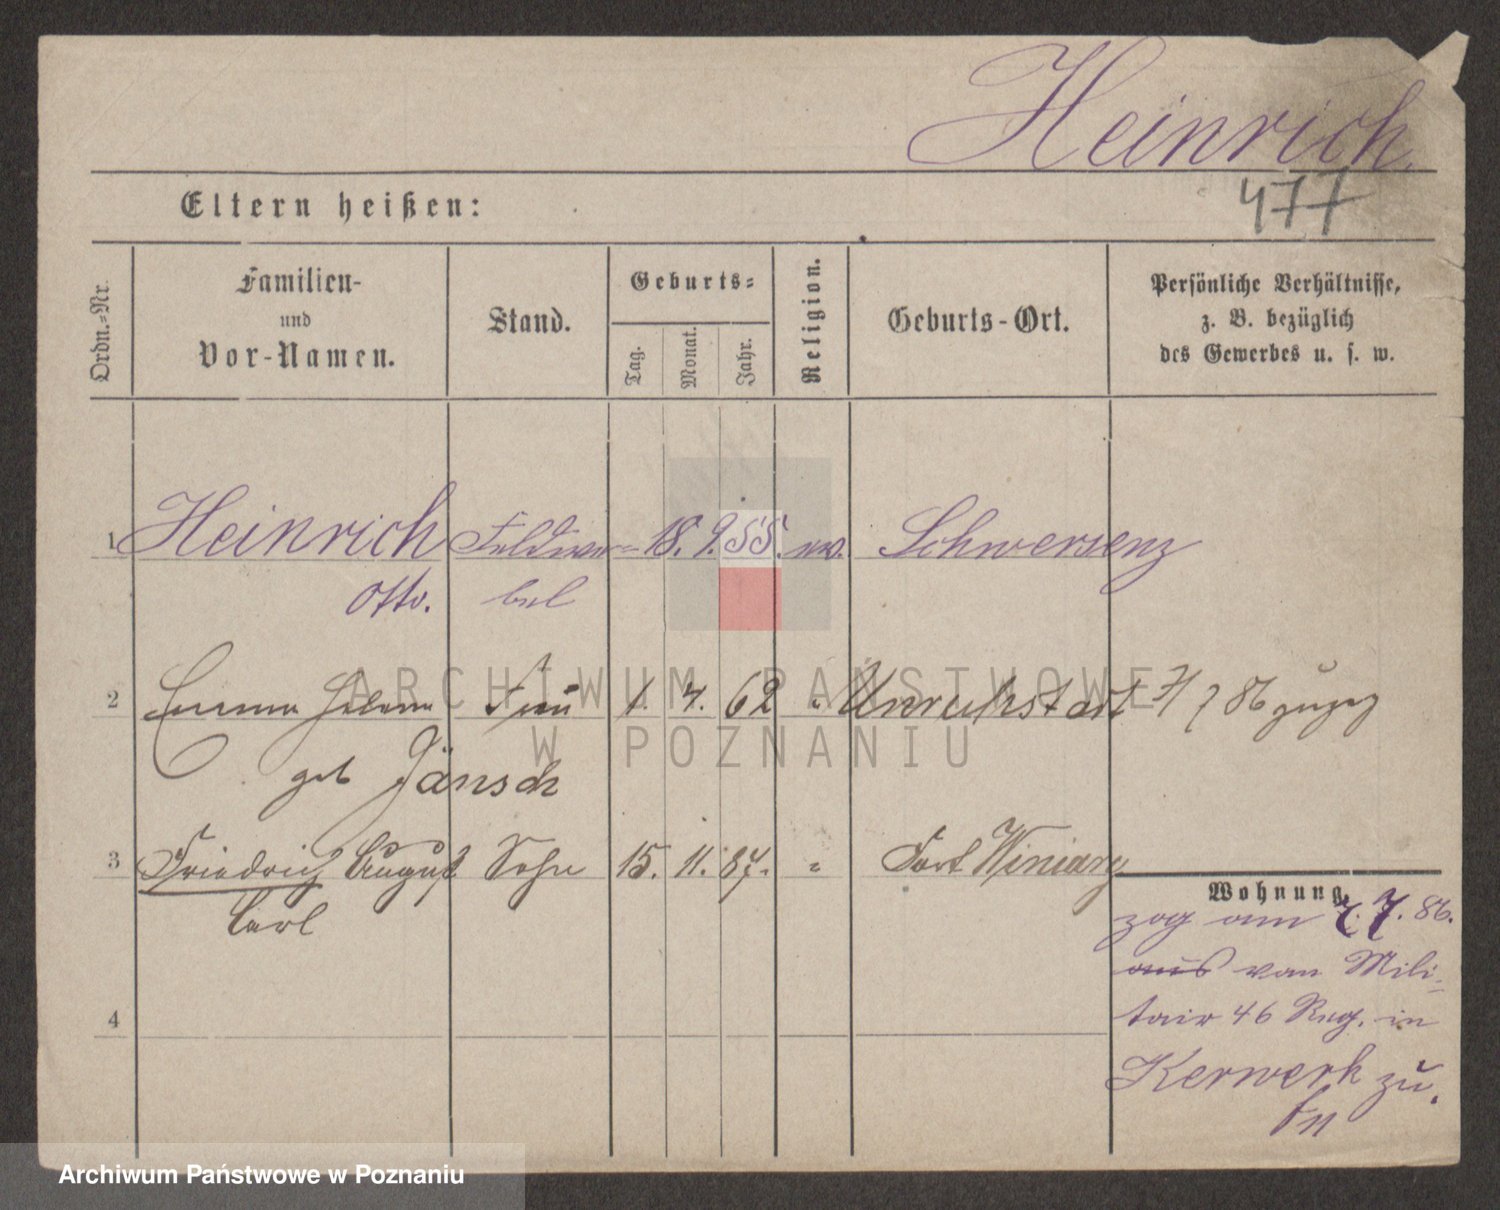 Heinrich.
477
Eltern heißen:
Ordn.-Nr.
Familien-
und
Vor-Namen.
Stand.
Geburts-
Tag.
Monat.
Jahr.
Religion.
Geburts-Ort.
Persönliche Verhältnisse,
z. B. bezüglich
des Gewerbes u. s. w.
1 Heinrich Feldwe- 18. 9. 55. ev. Schwersenz
Otto. bel
2 Emma Helene Frau 1. 4. 62 " Unruhstadt 7/7 86 zugez
geb Jänsch
3 Friedrich August Sohn 15. 11. 87. " Fort Winiary
Carl
Wohnung.
zog am 7.7. 86.
aus vom Mili-
tair 46 Reg. in
Kernwerk zu.
4
ARCHIWUM PAŃSTWOWE
W POZNANIU
Archiwum Państwowe w Poznaniu